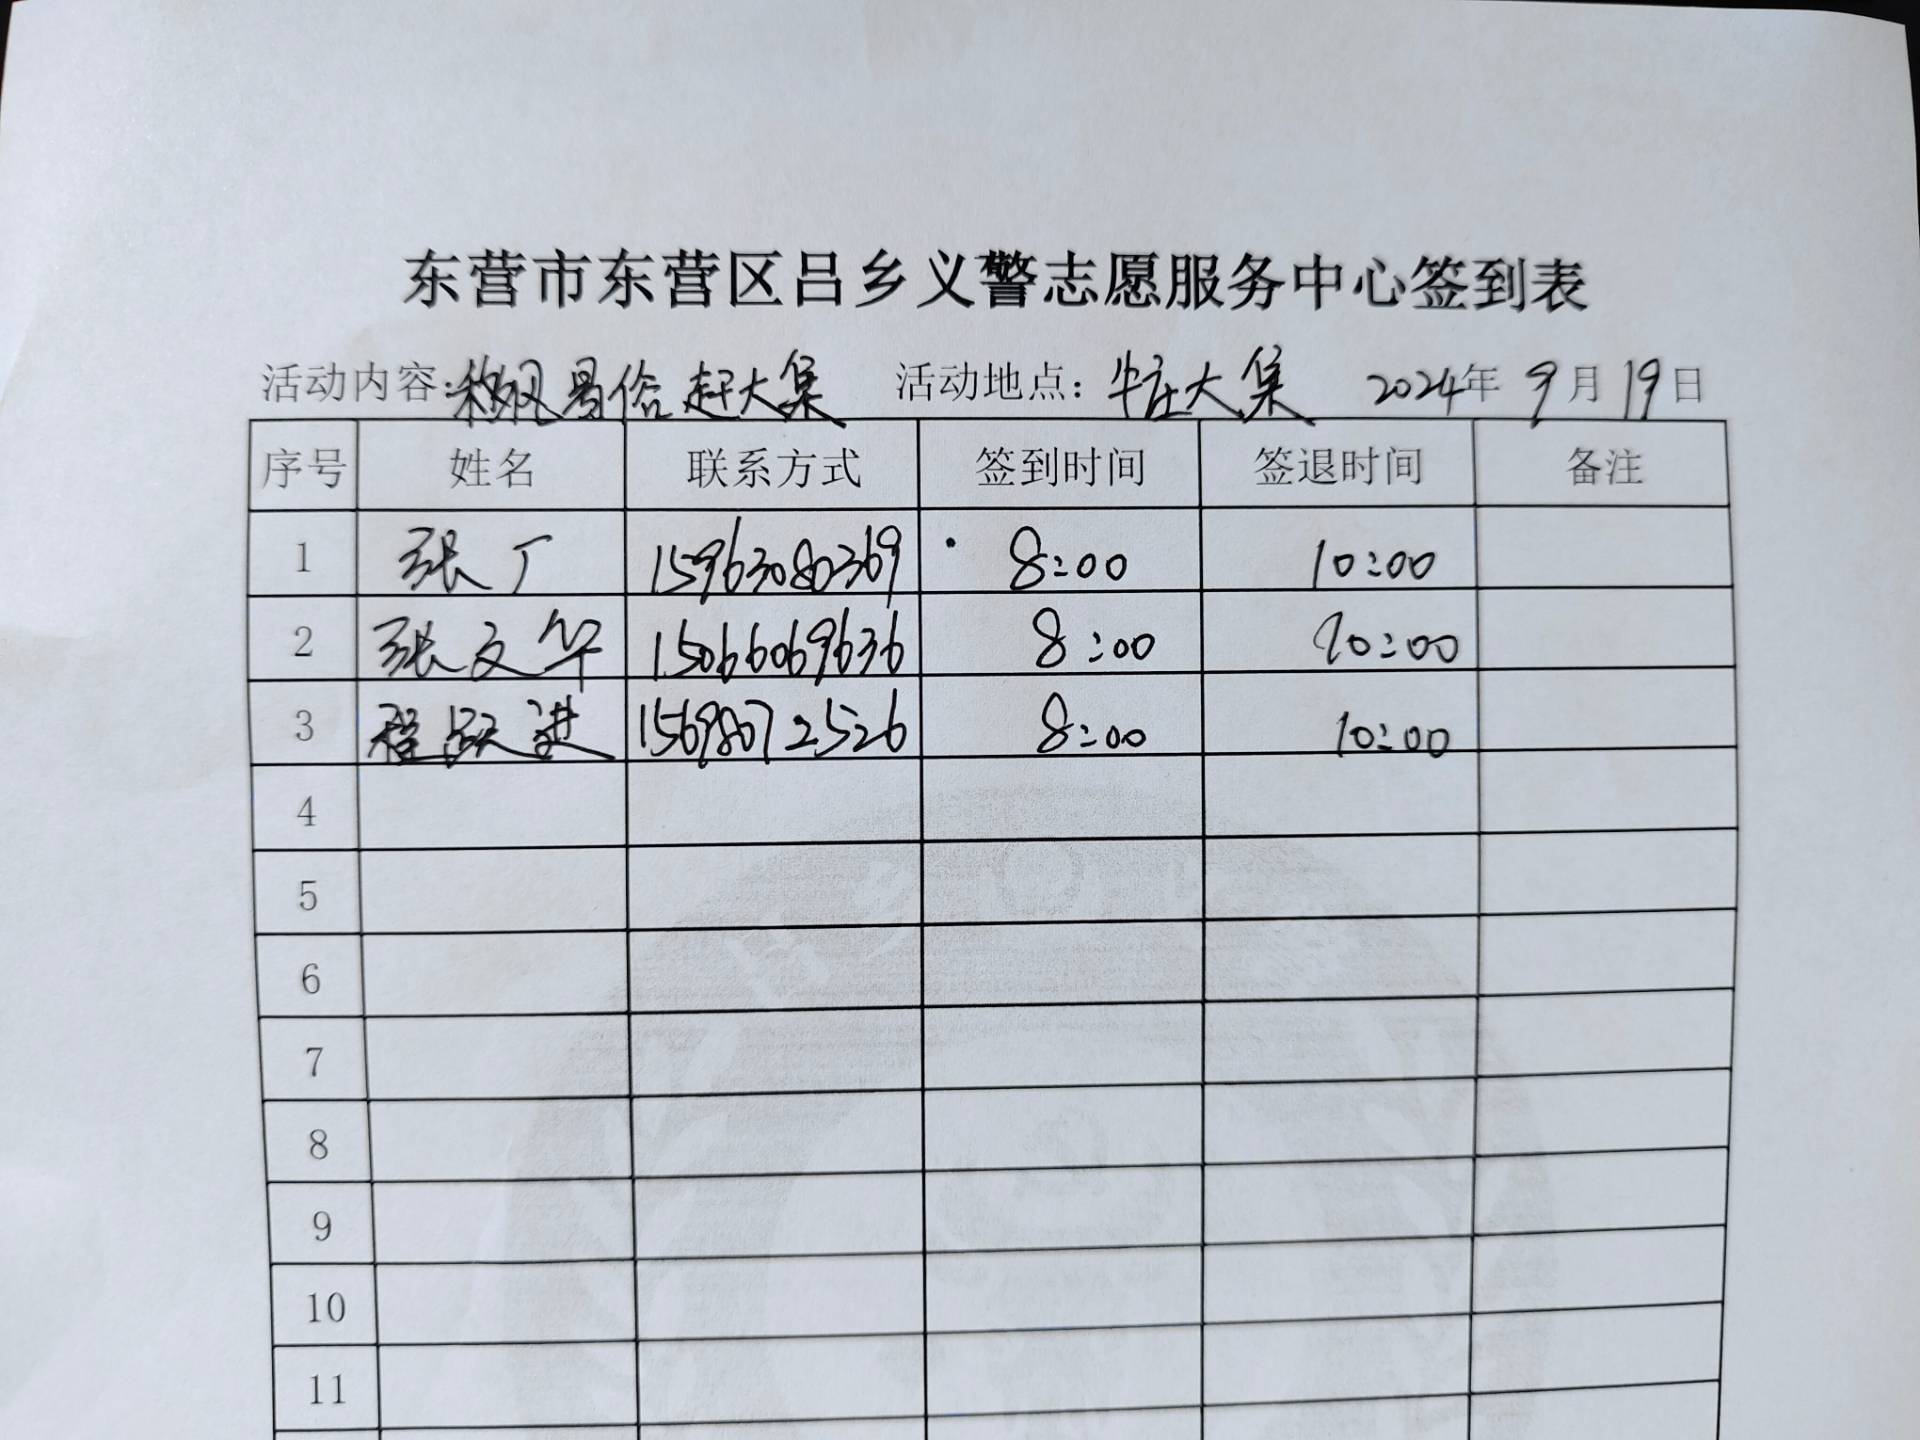 东营市东营区吕乡义警志愿服务中心签到表
活动内容:移风易俗赶大集 活动地点:牛庄大集 2024年9月19日
序号 姓名 联系方式 签到时间 签退时间 备注
1 张广 15963080369 8:00 10:00
2 张文华 15066069636 8:00 10:00
3 程跃进 15698072526 8:00 10:00
4
5
6
7
8
9
10
11